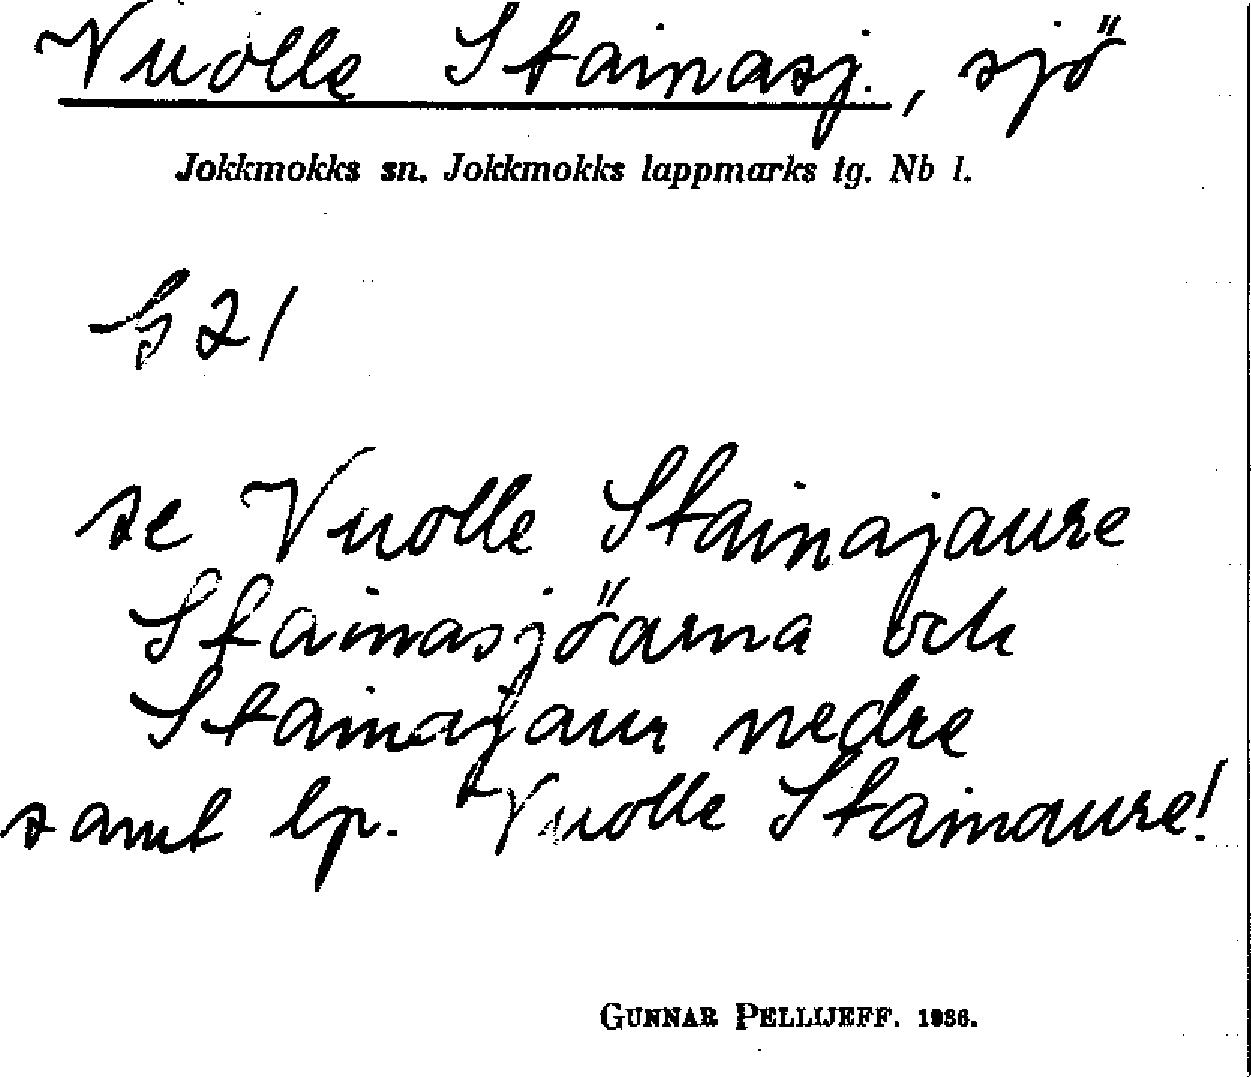 Vuolle Stainasj., sjö
Jokkmokks sn. Jokkmokks lappmarks tg. Nb l.
G 21
se Vuolle Stainajaure
Stainasjöarna och
Stainajaur nedre
samt lp. Vuolle Stainaure!
GUNNAR PELLIJEFF. 1936.